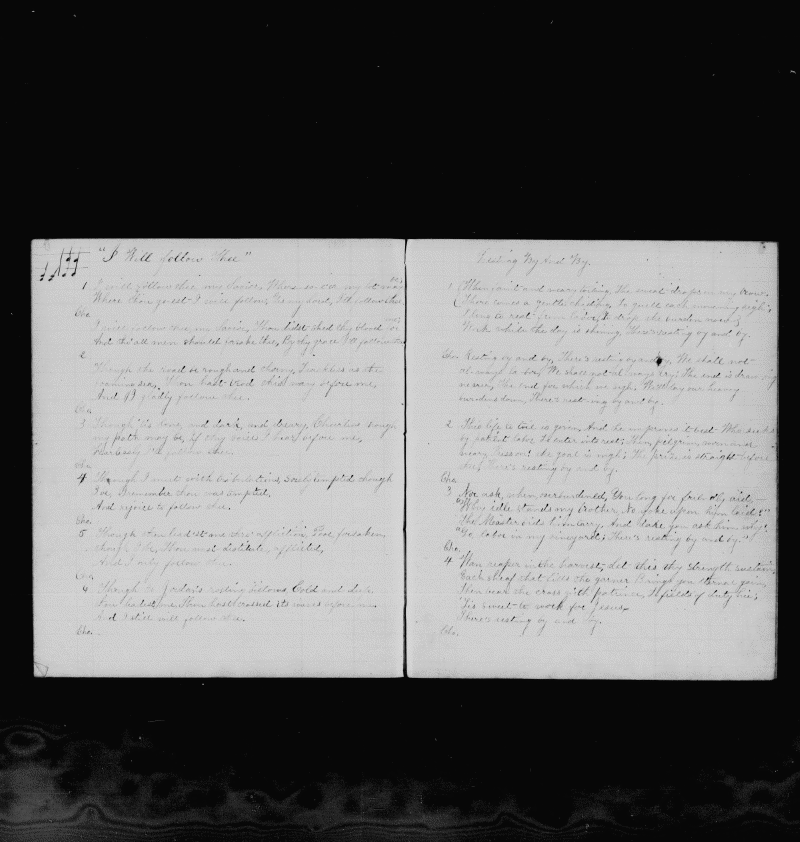 "I Will follow Thee"
1 I will follow thee my Savior, Where-so-ever my lot may be,
Where thou goest I will follow, Yes my Lord, I'll follow thee
Cho
I will follow thee, my Savior, Thou didst shed thy blood for me;
And tho all men should forsake thee, By thy grace I'll follow thee
2
Though the road be rough and thorny, Trackless as the
foaming sea, Thou hast trod this way before me,
And I'll gladly follow thee.
Cho.
3 Though 'tis lone, and dark, and dreary, Cheerless though
my path may be, if thy voice I hear before me,
Fearlessly I'll follow thee.
Cho
4 Though I meet with tribulations, sorely tempted though
I be, Remember thou wast tempted,
And rejoice to follow thee.
Cho.
5 Though thou lead'st me thro' affliction, Poor, forsaken,
though I be, Thou wast destitute, afflicted,
And I only follow thee.
Cho.
6 Though to Jordan's rolling billows, Cold and deep
thou leadest me, Thou hast crossed its waves before me
And I still will follow thee.
Cho.
Resting By And By.
1 When faint and weary toiling, The sweat drops on my brow,
There comes a gentle chiding, To quell each murmuring sigh;
Work while the day is shining, There's resting by and by.
Cho. Resting by and by, There's resting by and by, We shall not
always toil, We shall not always cry; The end is drawing
nearer, The end for which we sigh, We'll lay our heavy
burdens down, There's rest-ing by and by.
2 This life to toil is given, And he improves it best Who seeks
by patient labor To enter into rest; Then, pilgrim, worn and
weary, Press on! the goal is nigh; The prize is straight before
thee, There's resting by and by.
Cho.
3 Nor ask, when overburdened, You long for friendly aid,
"Why idle stands my brother, No yoke upon him laid?"
The Master bids him tarry, And dare you ask him why?
"Go labor in my vineyard; There's resting by and by."
Cho.
4 Wan reaper in the harvest, Let this thy strength sustain,
Each sheaf that fills the garner Brings you eternal gain;
Then bear the cross with patience, To fields of duty hie;
'Tis sweet to work for Jesus,
There's resting by and by.
Cho.